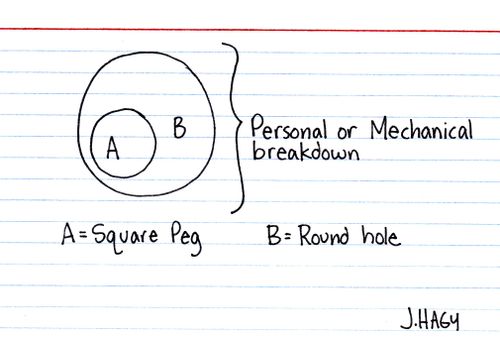 A
B
Personal or Mechanical
breakdown
A = Square Peg
B = Round hole
J.HAGY